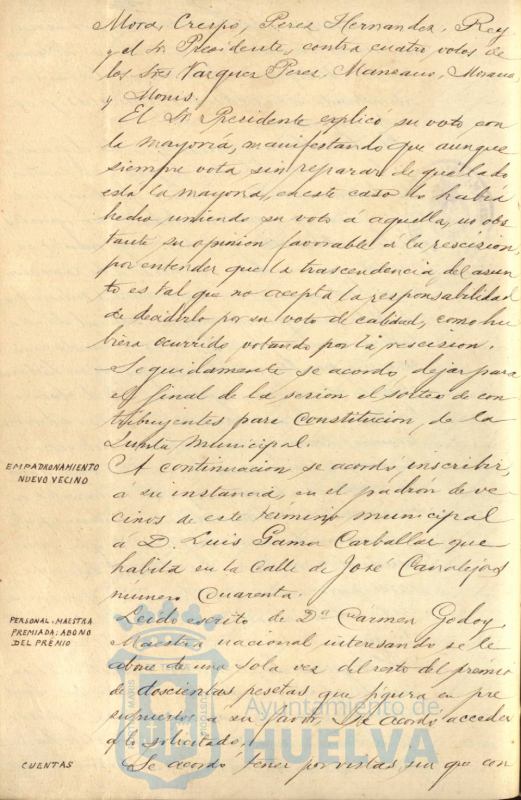 Mora, Crespo, Perez Hernandez, Rey
y el Sr. Presidente, contra cuatro votos de
los Sres Vazquez Perez, Manzano, Moreno,
y Monis.
El Sr. Presidente explicó su voto con
la mayoría, manifestando que aunque
siempre vota sin reparar de que lado
está la mayoria, en este caso lo habia
hecho uniendo su voto á aquella, no obs
tante su opinion favorable á la rescision,
por entender que la trascendencia del asun
to es tal que no acepta la responsabilidad
de decidirlo por su voto de calidad, como hu
biera ocurrido votando por la rescision.
Seguidamente se acordó dejar para
el final de la sesion el sorteo de con
tribuyentes para constitucion de la
Junta Municipal.
EMPADRONAMIENTO
NUEVO VECINO
A continuacion se acordó inscribir,
á su instancia, en el padrón de ve
cinos de este término municipal
á D. Luis Gamer Carballar que
habita en la Calle de José Canalejas
número Cuarenta.
PERSONAL: MAESTRA
PREMIADA: ABONO
DEL PREMIO
Leido escrito de Dª Cármen Godoy,
Maestra nacional interesando se le
abone de una sola vez del resto del premio
de doscientas pesetas que figura en pre
supuestos a su favor, Se acordó acceder
a lo solicitado.
CUENTAS
Se acordó tener por vistas sin que con
Ayuntamiento de
HUELVA